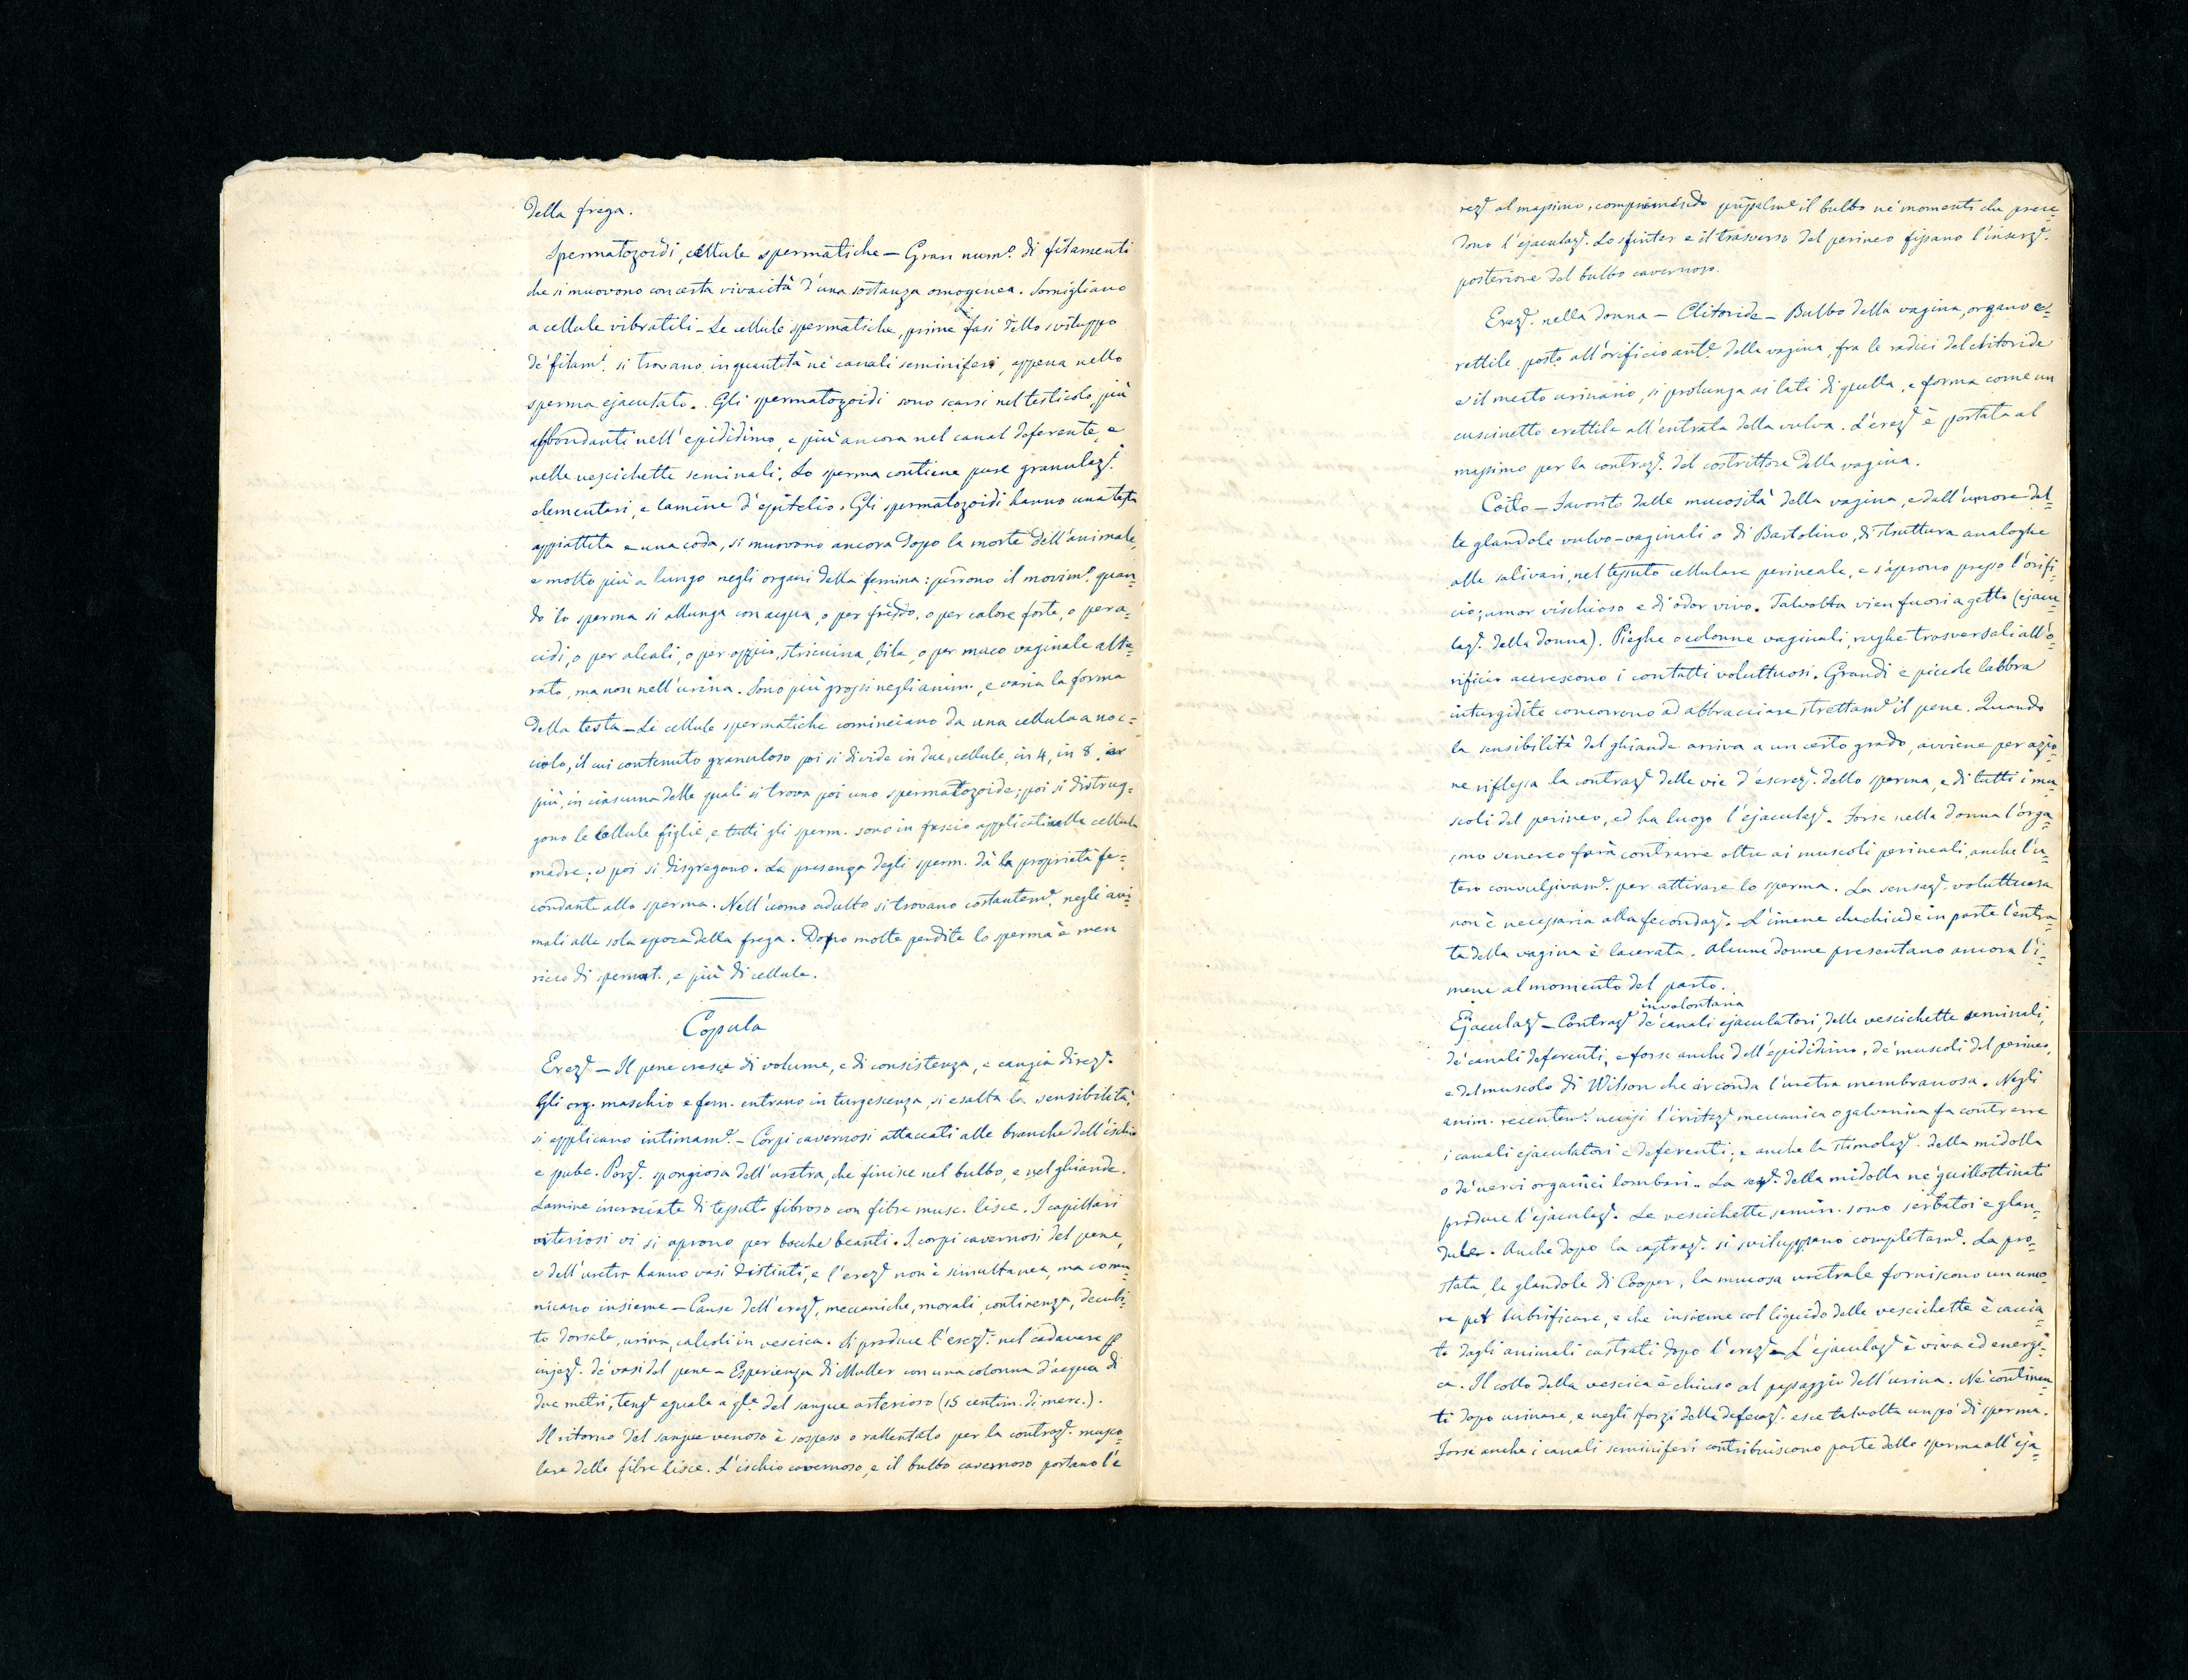 della frega.
Spermatozoidi, cellule spermatiche — Gran num.º di filamenti
che si muovono con certa vivacità d'una sostanza omogenea. Somigliano
a cellule vibratili — Le cellule spermatiche, prime fasi dello sviluppo
de' filam.ⁱ si trovano in quantità ne' canali seminiferi, appena nello
sperma ejaculato. Gli spermatozoidi sono scarsi nel testicolo, più
abbondanti nell'epididimo, e più ancora nel canal deferente, e
nelle vescichette seminali. Lo sperma contiene pure granulazⁱ.
elementari, e lamine d'epitelio. Gli spermatozoidi hanno una testa
appiattita e una coda, si muovono ancora dopo la morte dell'animale,
e molto più a lungo negli organi della femina: perdono il movim.º quan=
do lo sperma si allunga con acqua, o per freddo, o per calore forte, o per a=
cidi, o per alcali, o per oppio, stricnina, bile, o per muco vaginale alte=
rato, ma non nell'urina. Sono più grossi negli anim., e varia la forma
della testa — Le cellule spermatiche cominciano da una cellula a noc=
ciolo, il cui contenuto granuloso poi si divide in due cellule, in 4, in 8,
più, in ciascuna delle quali si trova poi uno spermatozoide; poi si distrug=
gono le cellule figlie, e tutti gli sperm. sono in fascio applicati alla cellula
madre; e poi si disgregano. La presenza degli sperm. dà la proprietà fe=
condante allo sperma. Nell'uomo adulto si trovano costantem.ᵉ, negli ani=
mali alla sola epoca della frega. Dopo molte perdite lo sperma è men
ricco di spermat., e più di cellule.
Copula
Erezᵉ — Il pene cresce di volume, e di consistenza, e cangia direzᵉ.
Gli org. maschio e fem. entrano in turgescenza, si esalta la sensibilità,
si applicano intimam.ᵉ — Corpi cavernosi attaccati alle branche dell'ischio
e pube. Porzᵉ. spongiosa dell'uretra, che finisce nel bulbo, e nel ghiande.
Lamine incrociate di tessuto fibroso con fibre musc. lisce. I capillari
arteriosi vi si aprono per bocche beanti. I corpi cavernosi del pene,
e dell'uretra hanno vasi distinti, e l'erezᵉ non è simultanea, ma comu=
nicano insieme — Cause dell'erezᵉ, meccaniche, morali, continenza, decubi=
to dorsale, urina, calcoli in vescica. Si produce l'erezᵉ. nel cadavere p
injezᵉ. de' vasi del pene — Esperienza di Muller con una colonna d'acqua di
due metri, tensᵉ eguale a qlª del sangue arterioso (15 centim. di merc.).
Il ritorno del sangue venoso è sospeso o rallentato per la contrazᵉ. musco=
lare delle fibre lisce. L'ischio cavernoso, e il bulbo cavernoso portano l'e
rezᵉ al massimo, comprimendo pnpalmᵉ il bulbo ne' momenti che prece=
dono l'ejaculazᵉ. Lo sfinter e il trasverso del perineo fissano l'inserzᵉ.
posteriore del bulbo cavernoso.
Erezᵉ. nella donna — Clitoride — Bulbo della vagina, organo e=
rettile, posto all'orificio ant.ᵉ della vagina, fra le radici del clitoride
e il meato urinario, si prolunga ai lati di quella, e forma come un
cuscinetto erettile all'entrata della vulva. L'erezᵉ è portata al
massimo per la contrazᵉ. del costrittore della vagina.
Coito — Favorito dalle mucosità della vagina, e dall'umore del=
le glandole vulvo-vaginali o di Bartolino, di struttura analoghe
alle salivari, nel tessuto cellulare perineale, e s'aprono presso l'orifi=
cio; umor vischioso e di odor vivo. Talvolta vien fuori a getto (ejacu=
lazᵉ. della donna). Pieghe o colonne vaginali, rughe trasversali all'o=
rificio accrescono i contatti voluttuosi. Grandi e piccole labbra
inturgidite concorrono ad abbracciare strettam.ᵉ il pene. Quando
la sensibilità del ghiande arriva a un certo grado, avviene per azio=
ne riflessa la contrazᵉ delle vie d'escrezᵉ. dello sperma, e di tutti i mu=
scoli del perineo, ed ha luogo l'ejaculazᵉ. Forse nella donna l'orga=
smo venereo farà contrarre oltre ai muscoli perineali, anche l'u=
tero convulsivam.ᵉ per attirare lo sperma. La sensazᵉ. voluttuosa
non è necessaria alla fecondazᵉ. L'imene che chiude in parte l'entra=
ta della vagina è lacerata. Alcune donne presentano ancora l'i=
mene al momento del parto.
Ejaculazᵉ — Contrazᵉ involontaria de' canali ejaculatori, delle vescichette seminali,
de' canali deferenti, e forse anche dell'epididimo, de' muscoli del perineo,
e del muscolo di Wilson che circonda l'uretra membranosa. Negli
anim. recentem.ᵉ uccisi l'irritazᵉ meccanica o galvanica fa contrarre
i canali ejaculatori e deferenti; e anche la stimolazᵉ. della midolla
o de' nervi organici lombari. La sezᵉ. della midolla ne' guillottinati
produce l'ejaculazᵉ. Le vescichette semin. sono serbatoi e glan=
dule. Anche dopo la castrazᵉ. si sviluppano completam.ᵉ. La pro=
stata, le glandole di Cooper, la mucosa uretrale forniscono un umo=
re pᵗ lubrificare, e che insieme col liquido delle vescichette è caccia=
to dagli animali castrati dopo l'erezᵉ — L'ejaculazᵉ è viva ed energi=
ca. Il collo della vescica è chiuso al passaggio dell'urina. Ne' continen=
ti dopo urinare, e negli sforzi della defecazᵉ. esce talvolta un po' di sperma.
Forse anche i canali seminiferi contribuiscono parte dello sperma all'eja=